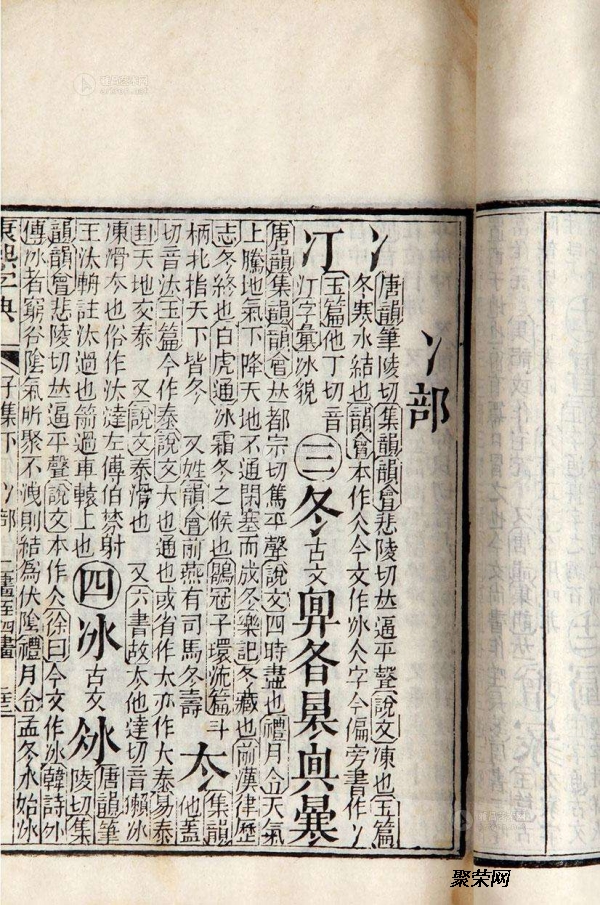 冫部
冫
唐韻筆陵切集韻韻會悲陵切𠀤逼平聲說文凍也玉篇
冬寒水結也韻會本作仌今文作冰仌字今偏旁書作冫
汀
玉篇他丁切音
汀字彙冰貌
三冬古文
唐韻集韻韻會𠀤都宗切篤平聲說文四時盡也禮月令天氣
上騰地氣下降天地不通閉塞而成冬樂記冬藏也前漢律歷
志冬終也白虎通冰霜冬之候也鶡冠子環流篇斗
柄北指天下皆冬 又姓韻會前燕有司馬冬壽
夳
集韻
他蓋
切音汰玉篇今作泰說文大也通也或省作太亦作大泰易泰
卦天地交泰 又說文泰滑也 又六書故夳他達切音獺冰
凍滑夳也俗作汰澾左傳伯棼射
王汰輈註汰過也箭過車轅上也
四冰古文
唐韻筆
陵切集
韻韻會悲陵切𠀤逼平聲說文本作仌徐曰今文作冰韓詩外
傳冰者窮谷陰氣所聚不洩則結爲伏陰禮月令孟冬水始冰
康熙字典 子集下 冫部 二畫至四畫
聚荣网